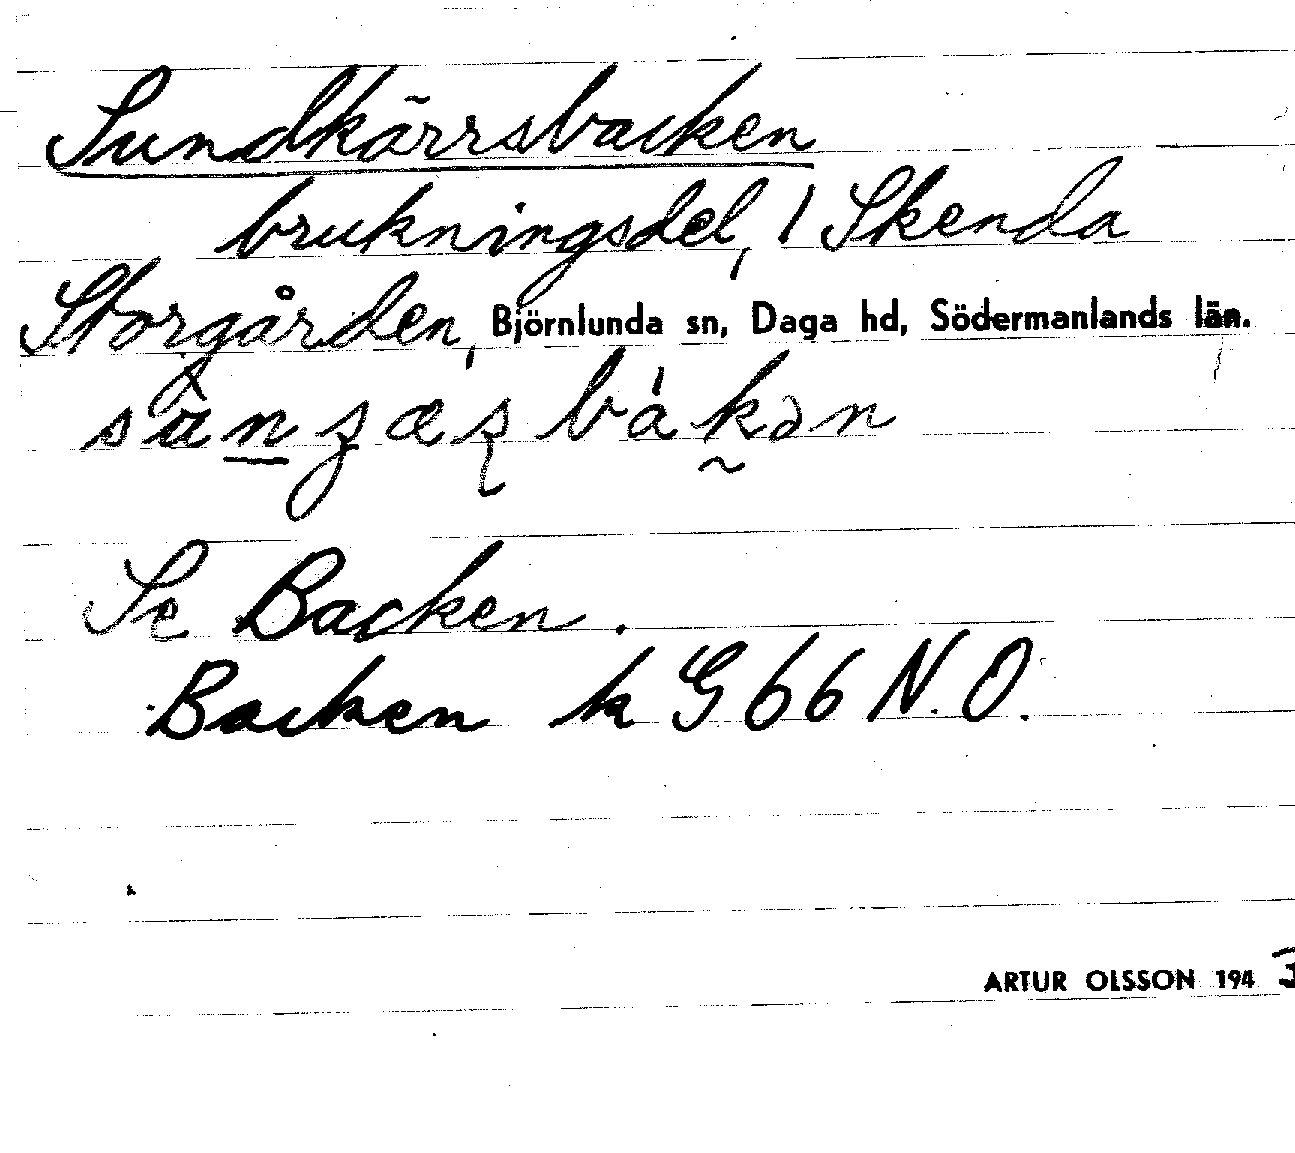 Sundkärrsbacken
brukningsdel, 1 Skenda
Storgården, Björnlunda sn, Daga hd, Södermanlands län.
Se Backen.
Backen k G 66 N.O.
ARTUR OLSSON 194 3